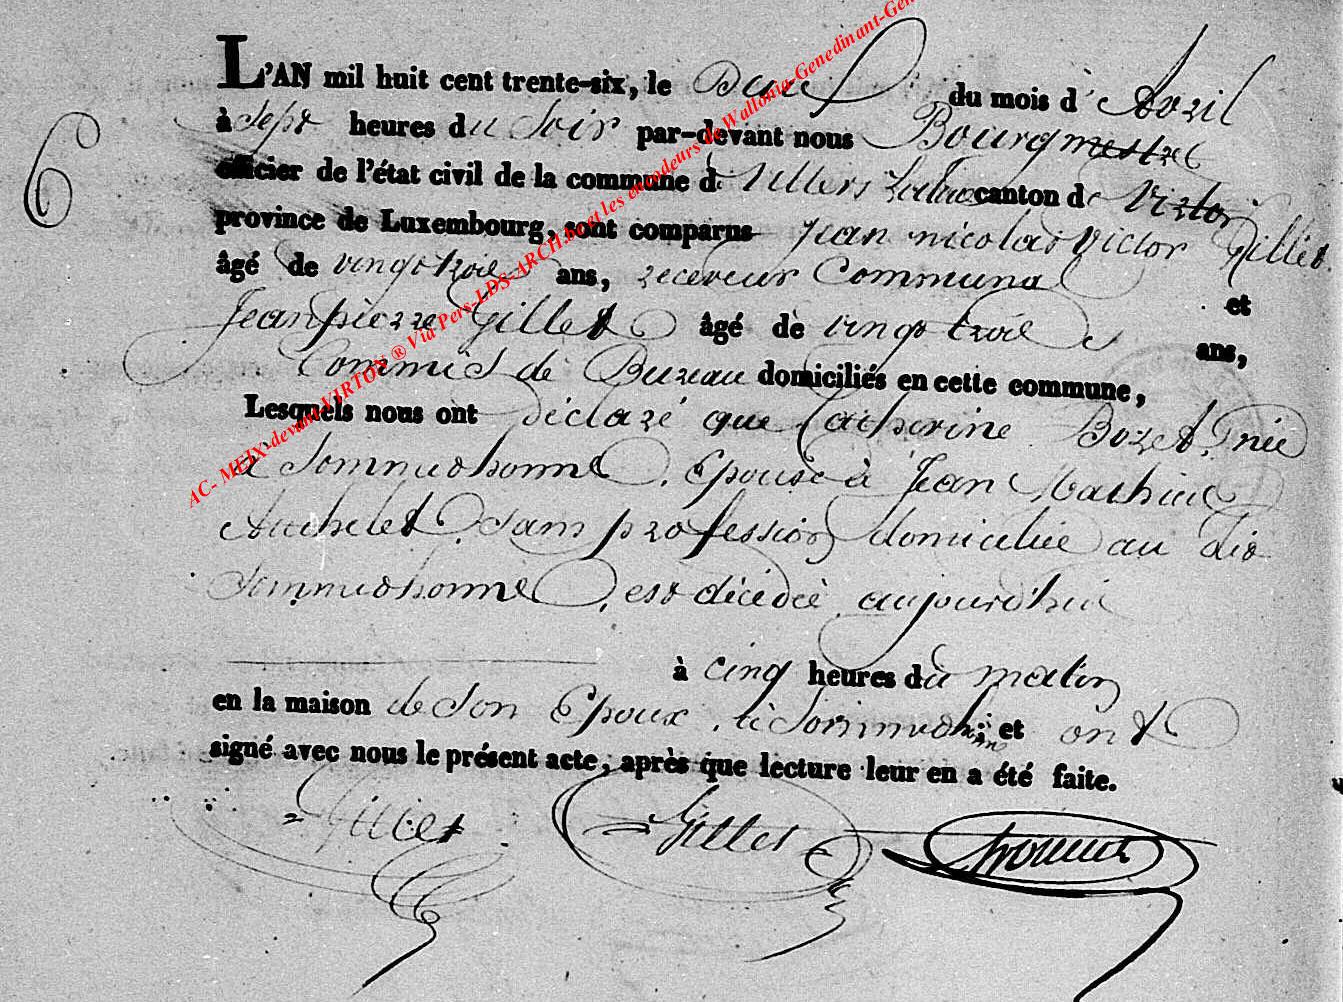 6
L'AN mil huit cent trente-six, le Deux du mois d'Avril
à Sept heures du Soir par-devant nous Bourgmestre
officier de l'état civil de la commune de Villers canton de Virton
province de Luxembourg, sont comparus Jean nicolas victor Gillet
âgé de vingt trois ans, receveur Communal et
Jeanpierre Gillet âgé de vingt trois ans,
Commis de Bureau domiciliés en cette commune,
Lesquels nous ont déclaré que Catherine Bozet, née
à Sommethonne, Epouse à Jean Mathieu
Authelet, sans profession domiciliée au dit
Sommethonne, est décédée aujourd'hui
à cinq heures du matin
en la maison de Son Epoux, à Sommethonne; et ont
signé avec nous le présent acte, après que lecture leur en a été faite.
Gillet Gillet
AC- MEIX-devant-VIRTON ® Via Pers-LDS-ARCH.be et les encodeurs de Wallonia-Genedinant-Gen